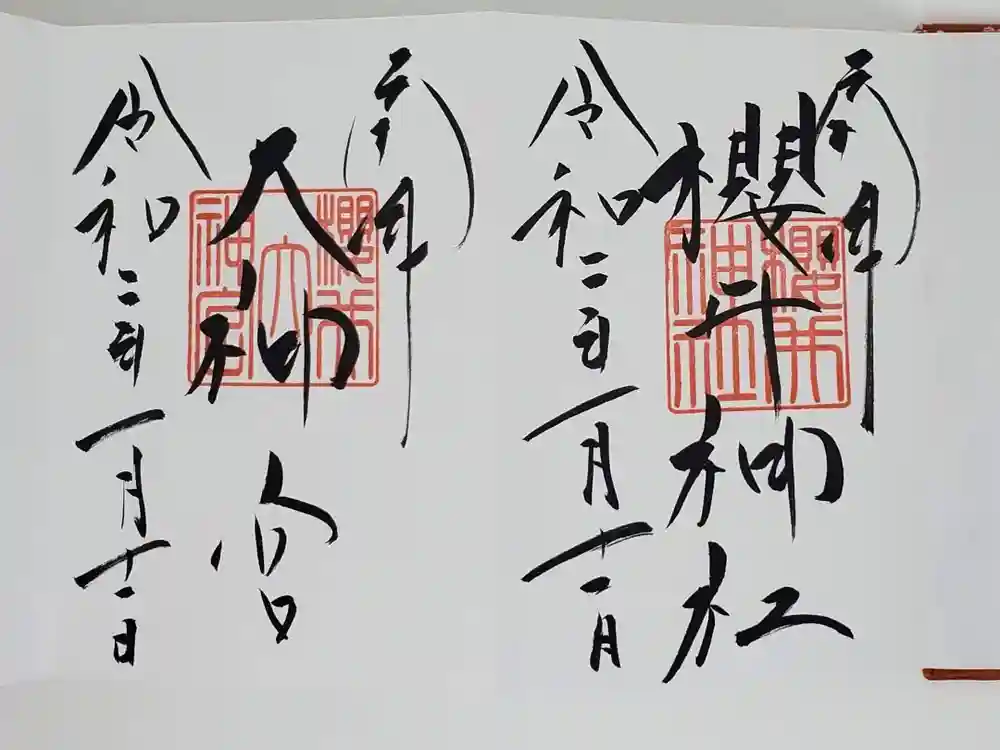 奉拝
櫻井神社
令和二年一月十一日
櫻井神社
奉拝
大神宮
令和二年一月十一日
櫻井大神宮